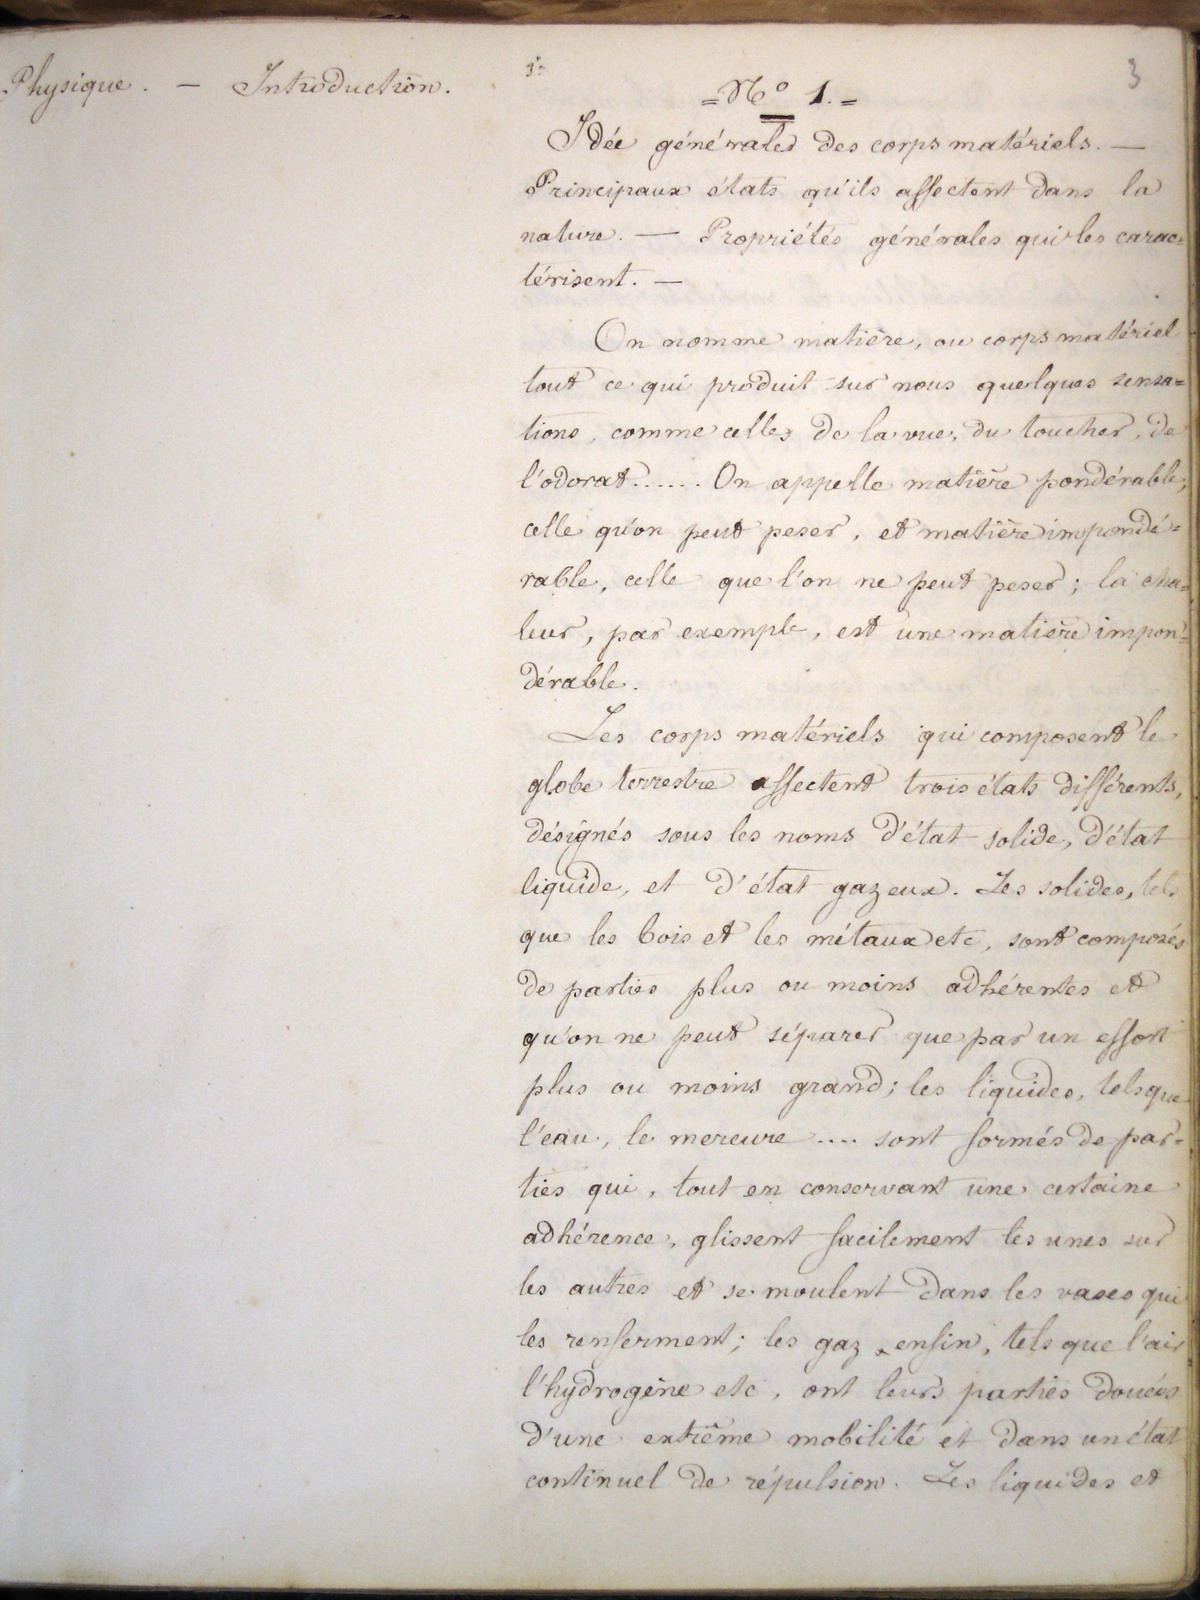 Physique. — Introduction.
3
= No 1. =
Idée générales des corps matériels. —
Principaux états qu'ils affectent dans la
nature. — Propriétés générales qui les carac=
térisent. —
On nomme matière, ou corps matériel
tout ce qui produit sur nous quelques sensa=
tions, comme celles de la vue, du toucher, de
l'odorat...... On appelle matière pondérable,
celle qu'on peut peser, et matière impondé=
rable, celle que l'on ne peut peser; la cha=
leur, par exemple, est une matière impon=
dérable.
Les corps matériels qui composent le
globe terrestre affectent trois états différents,
désignés sous les noms d'état solide, d'état
liquide, et d'état gazeux. Les solides, tels
que les bois et les métaux etc, sont composés
de parties plus ou moins adhérentes et
qu'on ne peut séparer que par un effort
plus ou moins grand; les liquides, tels que
l'eau, le mercure .... sont formés de par=
ties qui, tout en conservant une certaine
adhérence, glissent facilement les unes sur
les autres et se moulent dans les vases qui
les renferment; les gaz, enfin, tels que l'air
l'hydrogène etc, ont leurs parties douées
d'une extrême mobilité et dans un état
continuel de répulsion. Les liquides et